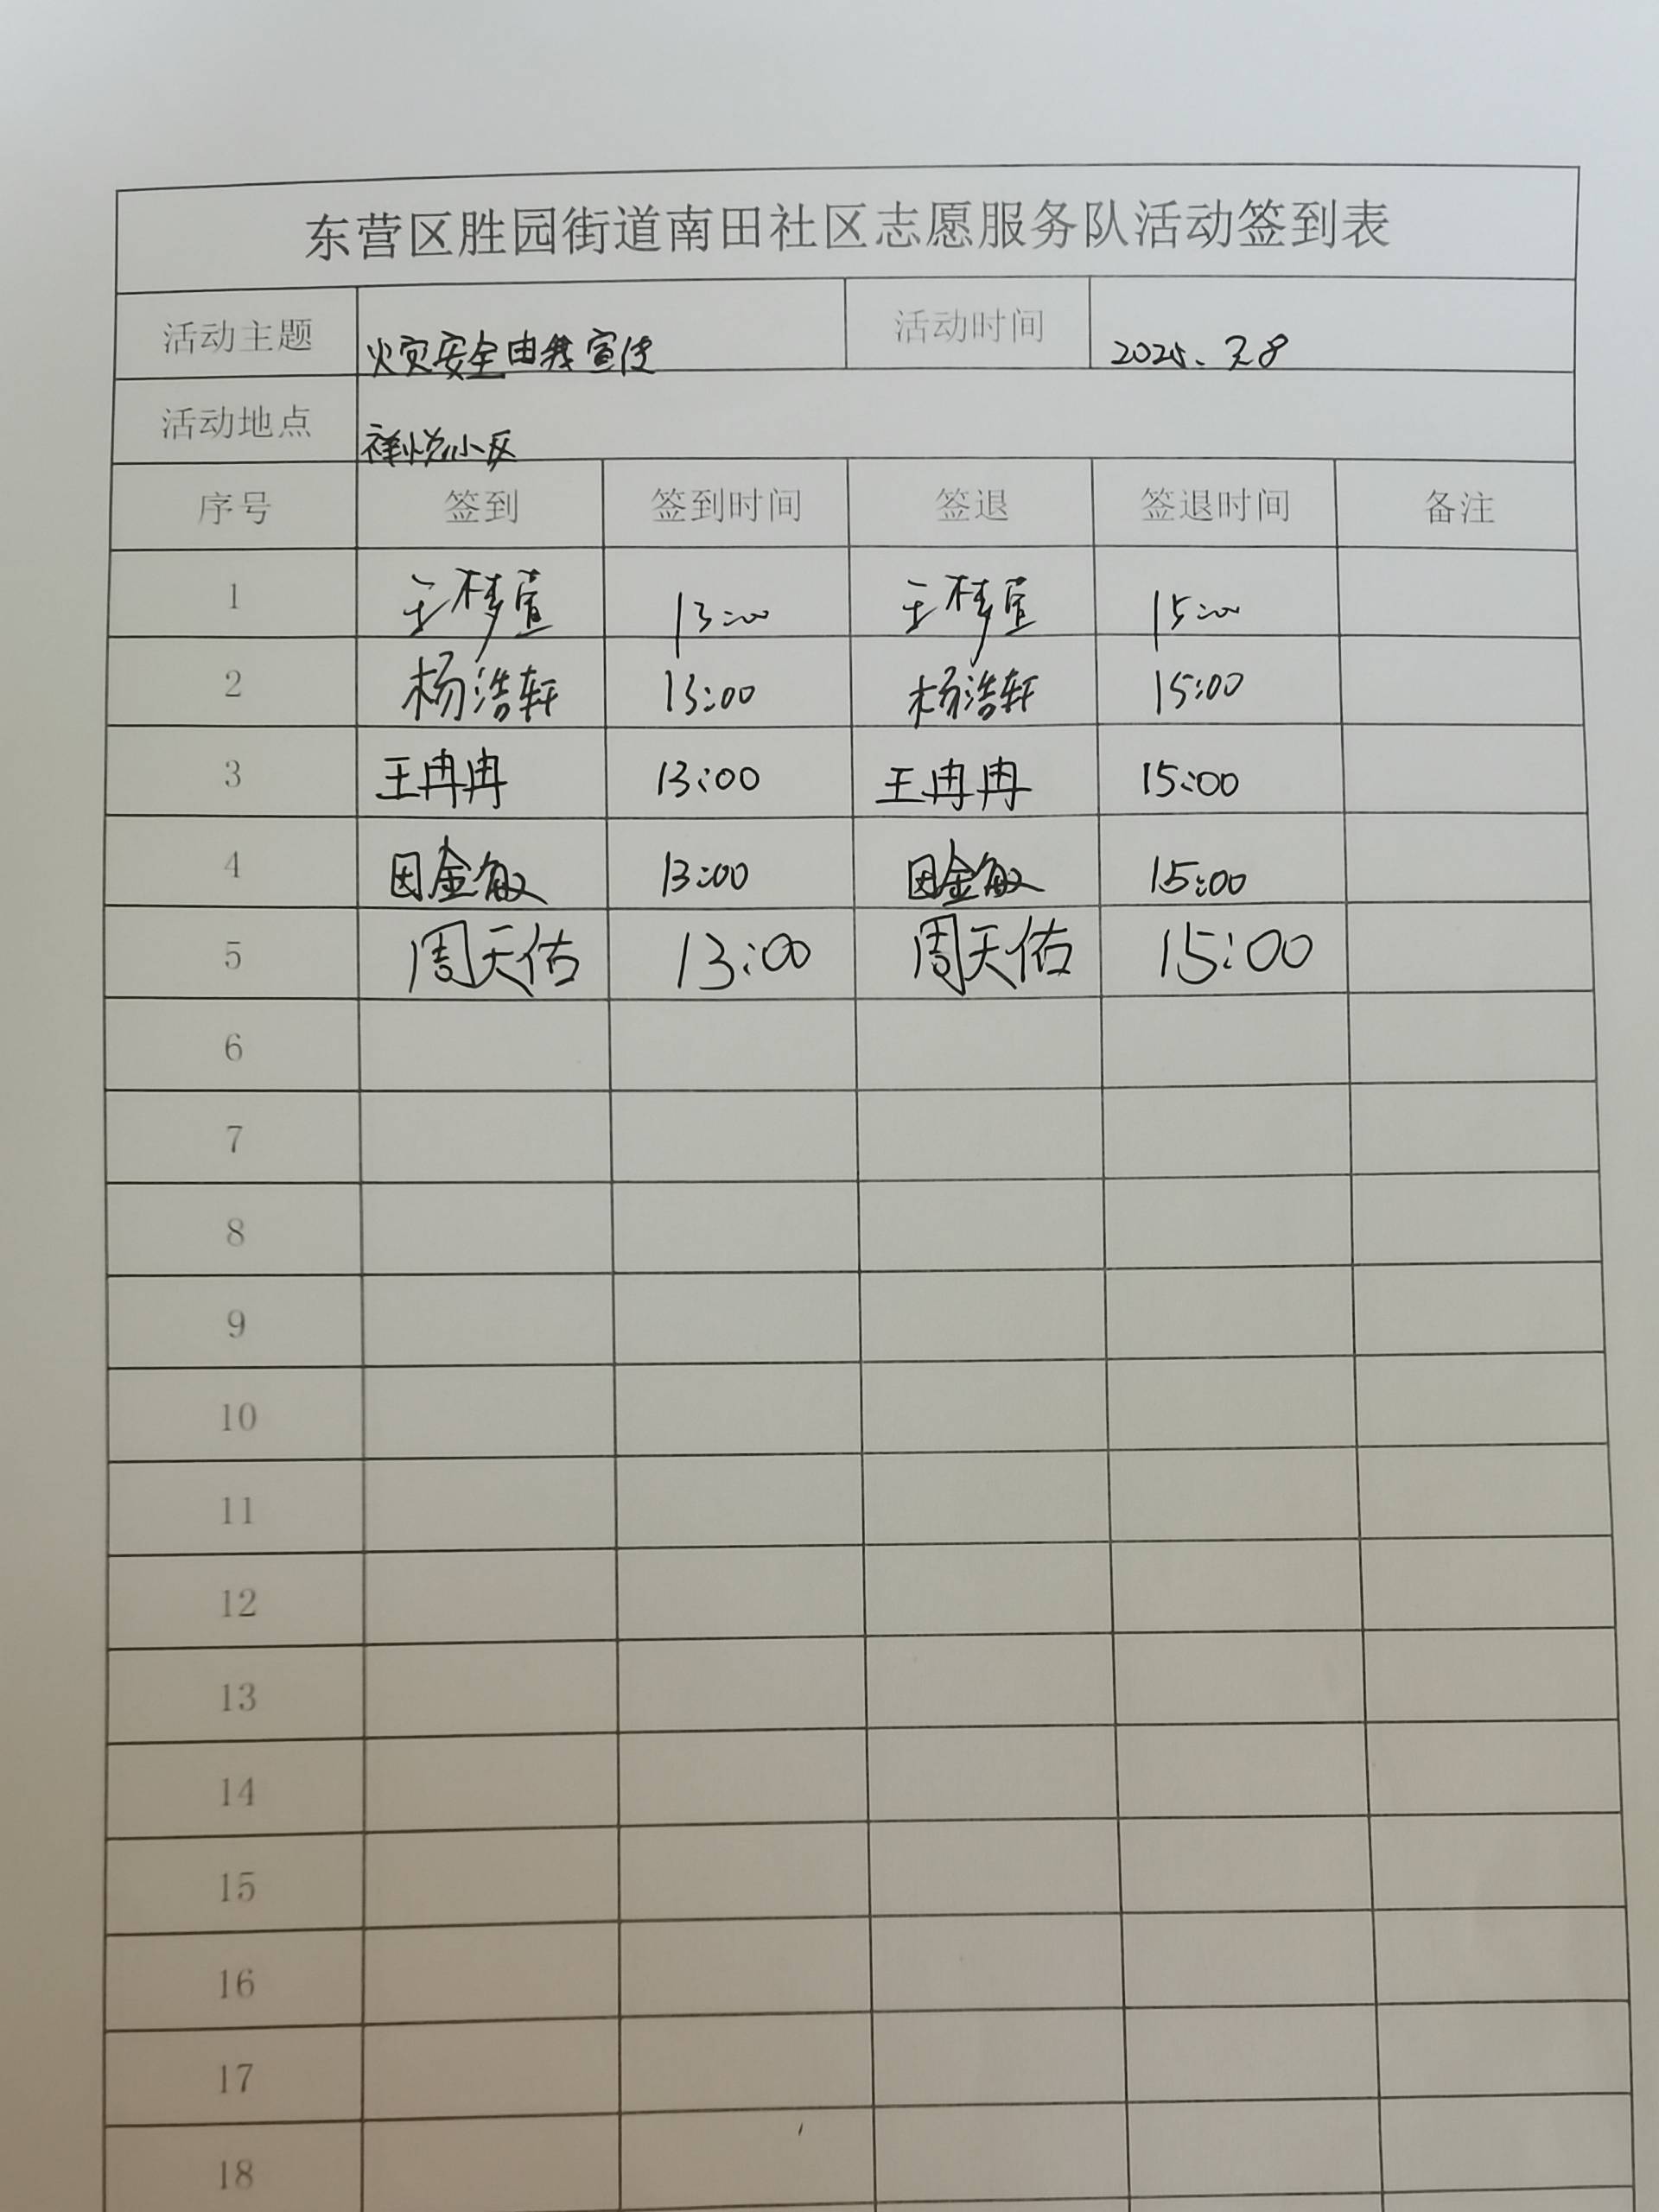 东营区胜园街道南田社区志愿服务队活动签到表
活动主题 火灾安全由我宣传 活动时间 2025.3.8
活动地点 祥悦小区
序号 签到 签到时间 签退 签退时间 备注
1 王梦萱 13:00 王梦萱 15:00
2 杨浩轩 13:00 杨浩轩 15:00
3 王冉冉 13:00 王冉冉 15:00
4 因金敏 13:00 因金敏 15:00
5 周天佑 13:00 周天佑 15:00
6
7
8
9
10
11
12
13
14
15
16
17
18